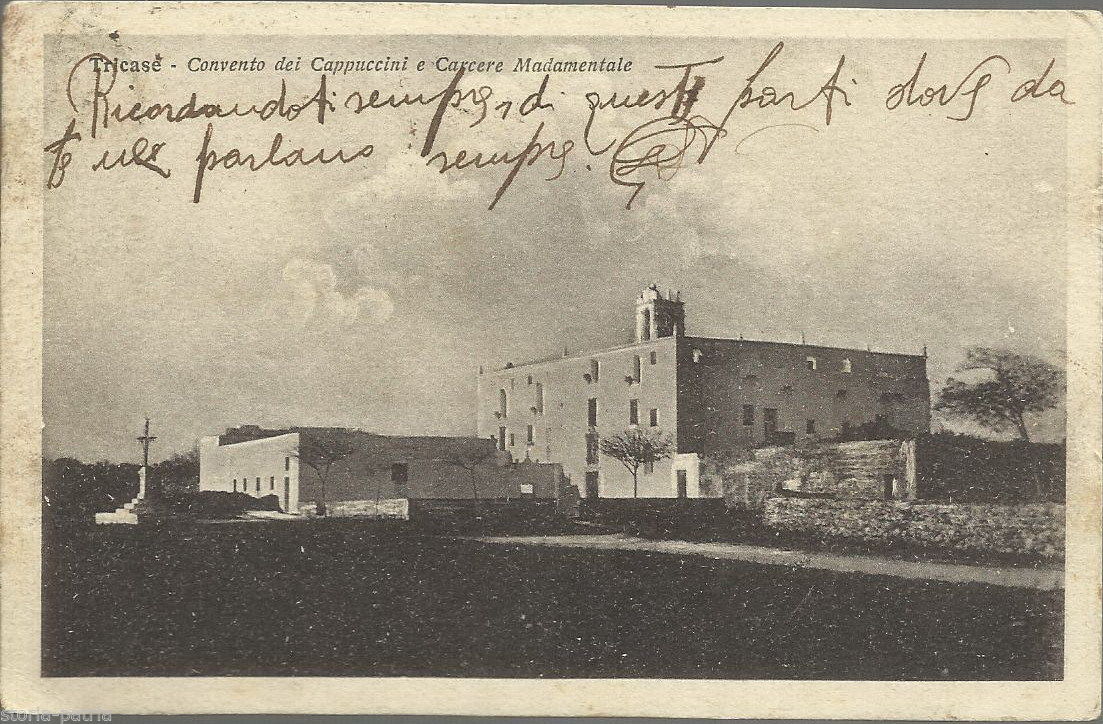 Tricase - Convento dei Cappuccini e Carcere Madamentale
Ricordandoti sempre, di queste parti dove da
te ne parlano sempre.
storia-patria